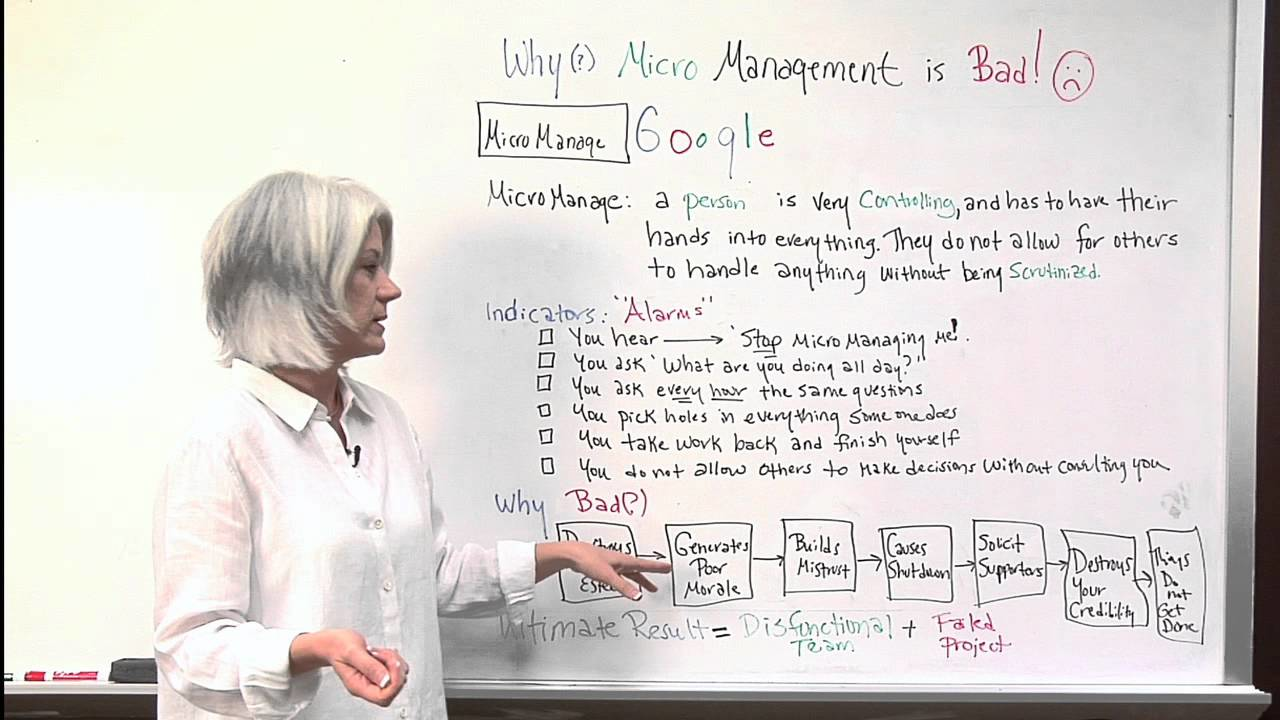 Why(?) Micro Management is Bad!
Micro Manage Google
MicroManage: a person is very Controlling, and has to have their
hands into everything. They do not allow for others
to handle anything without being Scrutinized.
Indicators: "Alarms"
You hear → 'Stop Micro Managing me!'.
You ask 'What are you doing all day?'
You ask every hour the same questions
You pick holes in everything some one does
You take work back and finish yourself
You do not allow others to make decisions without consulting you
Why Bad(?)
Generates
Poor
Morale
Builds
Mistrust
Causes
Shutdown
Solicit
Supporters
Destroys
Your
Credibility
Things
Do
not
Get
Done
Ultimate Result = Disfunctional + Failed
Team Project